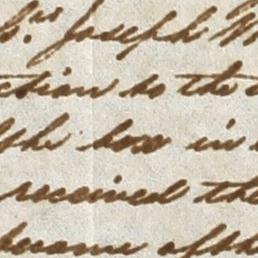 Joseph
ction to the
the box in
received the
became of the